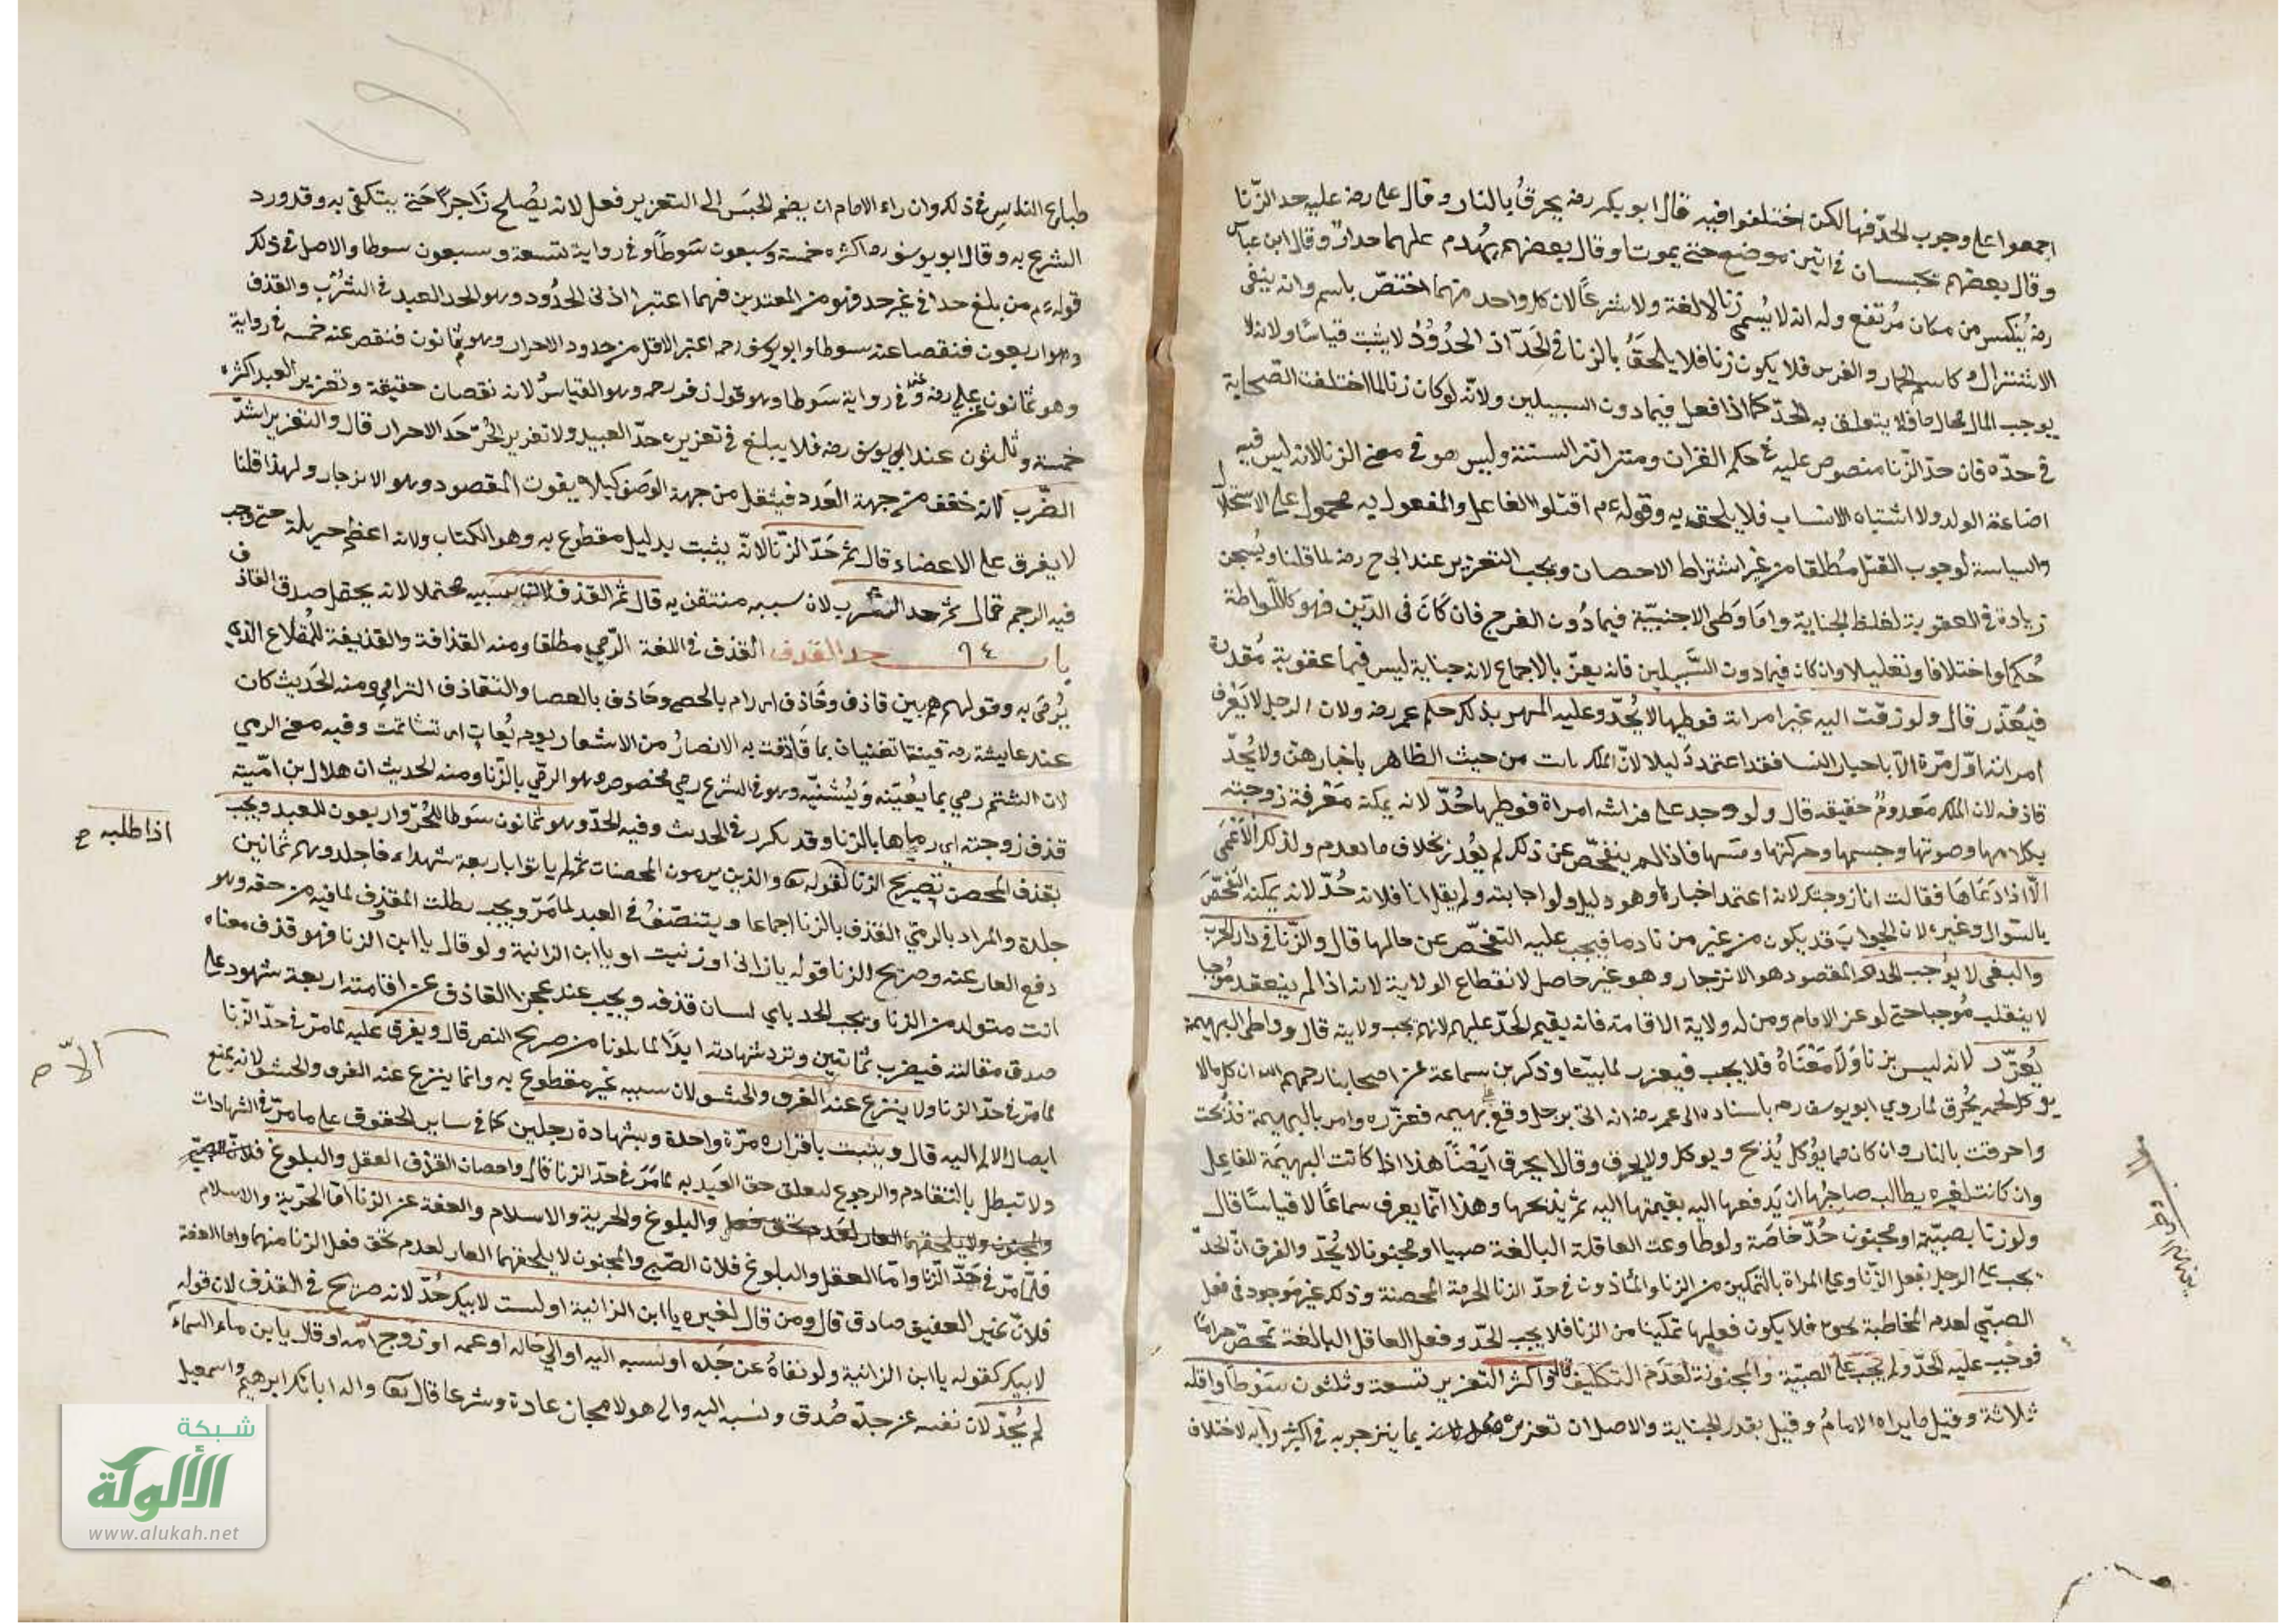 اجمعوا على وجوب الحدّ فيها لكن اختلفوا فيه قال ابو بكر رضه يحرقُ بالنار وقال على رضه عليه حد الزّنا
وقال بعضهم يحبسان في انتن موضع حتى يموتا وقال بعضهم يهدم عليهما جدار وقال ابن عباس
رضه يُنكس من مكان مُرتفع وله انه لا يُسمى زنا لا لغة ولا شرعًا لان كل واحد منهما اختصّ باسم وانه ينفى
الاشتراك كاسم الحمار والفرس فلا يكون زنا فلا يلحقُ بالزنا في الحَدّ اذ الحُدُودُ لا يثبت قياسًا ولانه لا
يوجب المال بحال ما فلا يتعلق به الحدّ كما اذا فعل فيما دون السبيلين ولانّه لو كان زنا لما اختلفت الصّحابة
في حدّه فان حدّ الزّنا منصوص عليه في حكم القران ومتواتر السنة وليس هو في معنى الزنا لانه ليس فيه
اضاعة الولد ولا اشتباه الانساب فلا يلحق به وقوله ءم اقتلوا الفاعل والمفعول به محمول على الاستحلال
والسياسة لوجوب القتل مُطلقا من غير اشتراط الاحصان ويجب التعزير عند ابى ح رضه لما قلنا ويُسجن
زيادة في العقوبة لغلظ الجناية واما وطى الاجنبيّة فيما دُون الفرج فان كان فى الدّبر فهو كاللّواطة
حُكما واختلافا وتعليلا وان كان فيما دون السَّبيلين فانه يعزّر بالاجماع لانه جناية ليس فيها عقوبة مُقدرة
فيُعَزّر قال ولو زفت اليه غير امراته فوطيها لا يُحدّ وعليه المهر بذلك حكم عمر رضه ولان الرجل لا يَعْرف
امراته اوّل مرّة الا باخبار النسا فقد اعتمد دليلا لانّ الملك ثابت من حيث الظاهر باخبارهنّ ولا يُحدّ
قاذفه لان الملك مَعدومٌ حقيقه قال ولو وجد على فراشه امراة فوطيها حُدّ لانه يمكنه مَعْرفة زوجته
بكلامها وصوتها وجسمها وحركتها ومسها فاذا لم يتفحّص عن ذلك لم يُعْذر بخلاف ما تقدم ولذلك الاعْمَى
الّا اذا دَعَاهَا فقالت انا زوجتك لانه اعتمد اخبارها وهو دليل ولو اجابته ولم يقل انا فلانه حُدّ لانه يمكنه التفحّصَ
بالسّوال وغيره لان الجوابَ قد يكون من غير من نادها فيجب عليه التفحّص عن حالها قال والزّنا في دار الحرب
والبغى لا يوجب الحد المقصود هو الانزجار وهو غير حاصل لانقطاع الولاية لانه اذا لم ينعقد مُوجبا
لا ينقلب مُوجبا حتى لو غزا الامام ومن له ولاية الاقامة فانه يقيم الحَدّ عليهم لانهم تحت ولايته قال وواطى البهيمة
يُعزّر لانه ليس بزنا وَلا مَعْنَاهُ فلا يجب فيعزر لما بينّا وذكر بن سماعة عن اصحابنا رحمهم الله ان كل ما لا
يوكل لحمه يُحرق لما روي ابو يوسف رحه باسناده الى عمر رضه انه اتى برجل وقع على بهيمه فعزّره وامر بالبهيمة فذبحت
واحرقت بالنار وان كان مما يُوكل يُذبح ويوكل ولا يحرق وقالا يحرق اَيْضًا هذا اذا كانت البهيمة للفاعِل
وان كانت لغيره يطالب صاحبُها ان يَدفعها اليه بقيمتها اليه ثم يذبحها وهذا انّما يعرف سماعًا لا قياسًا قال
ولو زنا بصبيّة او مجنون حُدّ خاصة ولو طاوعت العاقلة البالغة صبيا او مجنونا لا يُحدّ والفرق انّ الحدّ
يجب على الرجل بفعل الزّنا وعلى المراة بالتمكين من الزنا والمأذون في حدّ الزنا الحرمة المحصنة وذلك غير مَوجود فى فعل
الصبّي لعدم المخاطبة نحوه فلا يكون فعليها تمكينا من الزنا فلا يجب الحدّ وفعل العاقل البالغة تمحّض حرامًا
فوجَب عليه الحدّ ولم يجب على الصبيّة والمجنونة لعدم التكليف قال واكثر التعزير تسعة وثلثون سَوْطًا واقله
ثلاثة وقيل ما يراه الامامُ وقيل بقدر الجناية والاصل ان تعزيره بما ينزجر به في اكثر رايه لاختلاف
بهيمة
طبايع الناس في ذلك وان راء الامام ان يضم الحبسَ الى التعزير فعل لانه يصْلح زَاجرًا حَتى يتكفى به وقد ورد
الشرع به وقال ابو يوسف رحه اكثره خمسة وسبعون سَوطًا وفي رواية تسعة وسبعون سوطا والاصل في ذلك
قوله ءم من بلغ حدا في غير حد فهو من المعتدين فهما اعتبرا ادنى الحدُود وهو الحد العبد في الشُرْب والقذف
وهو اربعون فنقصا عنه سوطا وابو يوسف رحه اعتبر الاقل من حدود الاحرار وهو ثمانون فنقص عنه خمسه في رواية
وهو ثمانون عن على رضه وفى رواية سَوطا وهو قول زفر رحه وهو القياسُ لانه نقصان حقيقة وتعزير العبد اكثره
خمسة وثلثون عند ابي يوسف رضه فلا يبلغ في تعزيره حدّ العبيد ولا تعزير الحُرّ حَد الاحرار قال والتعزير اشدّ
الضّرب لانه خفف من جهة العَدد فيثقل من جهة الوَصف كيلا يفوت المقصود وهو الانزجار ولهذا قلنا
لا يفرق على الاعضاء قال ثم حَدّ الزّنا لانّه يثبت بدليل مقطوع به وهو الكتاب ولانه اعظم جريمة حتى وجب
فيه الرجم قال ثم حد الشرب لان سببه متيقن به قال ثم القذف لان سببه محتملا لانه يحتمل صدق القاذف
باب ٩٤ حد القذف القذف في اللغة الرّمي مطلقا ومنه القذافة والقذيفة للمُقلاع الذي
يُرمَى به وقولهم هم بين قاذف وحَاذف اى رام بالحصى وحَاذف بالعصا والتقاذف الترامي ومنه الحَديث كان
عند عايشة رضه قينتا تغنيان بما قَاذفت به الانصارُ من الاشعار يوم بُعاث اى تشاتمت وفيه معنى الرمي
لان الشتم رمي بما يعُيبّه وَيُشنيّه وهو في الشرع رمي مخصوص وهو الرمّي بالزّنا ومنه الحديث ان هلال بن امّية
قذف زوجته اى رماها بالزنا وقد تكرر في الحديث وفيه الحدّ وهو ثمانون سَوطا للحُرّ واربعون للعبد ويجب
بقذف المحصن بتصريح الزنا لقوله تعا والذين يرمون المحصنات ثم لم ياتوا باربعة شهداء فاجلدوهم ثمانين
جلدة والمراد بالرميّ القذف بالزنا اجماعا ويتنصّفُ في العبد لما مَرّ ويجب بطلب المقذوف لما فيه من حقه وهو
دفع العار عنه وصريح الزنا قوله يا زانى او زنيت او يا ابن الزانية ولو قال يا ابن الزنا فهو قذف معناه
انت متولد من الزنا ويجب الحد باي لسان قذفه ويجب عند عجز القاذف عن اقامته اربعة شهود على
صدق مقالته فيضرب ثمانين وترد شهادته ابدًا لما تلونا من صريح النص قال ويفرق عليه لما مرّ في حدّ الزّنا
لما مرّ في حدّ الزنا ولا ينزع عنه الفرو والحشو لان سببه غير مقطوع به وانما ينزع عنه الفرو والحشو لانه يمنع
ايصال الالم اليه قال ويثبت باقراره مرّة واحدة وبشهادة رجلين كما في ساير الحقوق على ما مرّ في الشهادات
ولا تبطل بالتقادم والرجوع لتعلق حق العبَد به لما مَرّ في حدّ الزنا قال واحصان القذف العقل والبلوغ
والبلوغ والحرية والاسلام والعفة عن الزنا امّا الحرّية والاسلام
فلمّا مرّ في حَدّ الزّنا وامّا العقل والبلوغ فلان الصّبي والمجنون لا يلحقهما العار لعدم تحقق فعل الزنا منهما واما العفة
فلانّ غير العفيف صادق قال ومن قال لغيره يا ابن الزانية او لست لابيك حُدّ لانه صريح في القذف لان قوله
لابيك كقوله يا ابن الزانية ولو نفاهُ عن جَده او نسبه اليه او الي خاله او عمه او زوج امّه او قال يا بن ماء السماء
لم يُحدّ لان نفيه عن جدّه صُدق ونسبه اليه والى هولا مجاز عادة وشرعا قال تعا واله ابائك ابراهيم واسمعيل
اذا طلبه ح
الا ح
شبكة
الألوكة
www.alukah.net